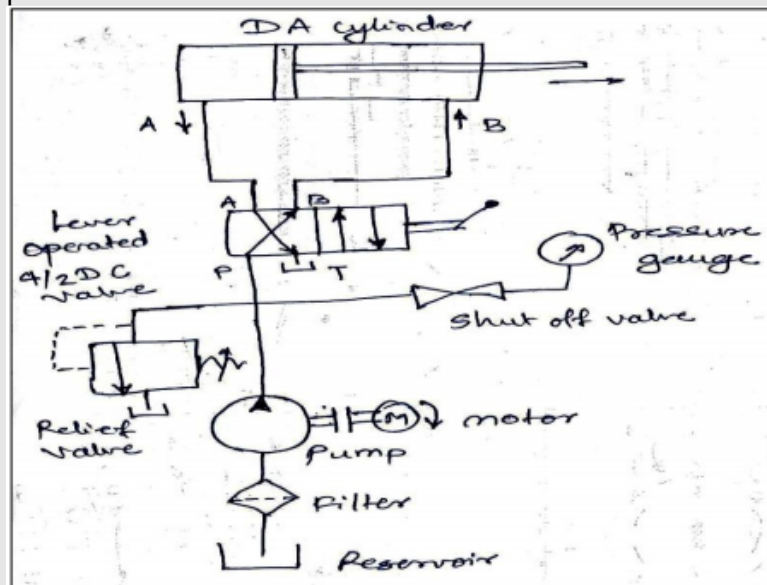 DA cylinder
A
B
A
B
Lever
operated
4/2 DC
valve
P
T
Pressure
gauge
Shut off valve
Relief
valve
M
motor
Pump
Filter
Reservoir